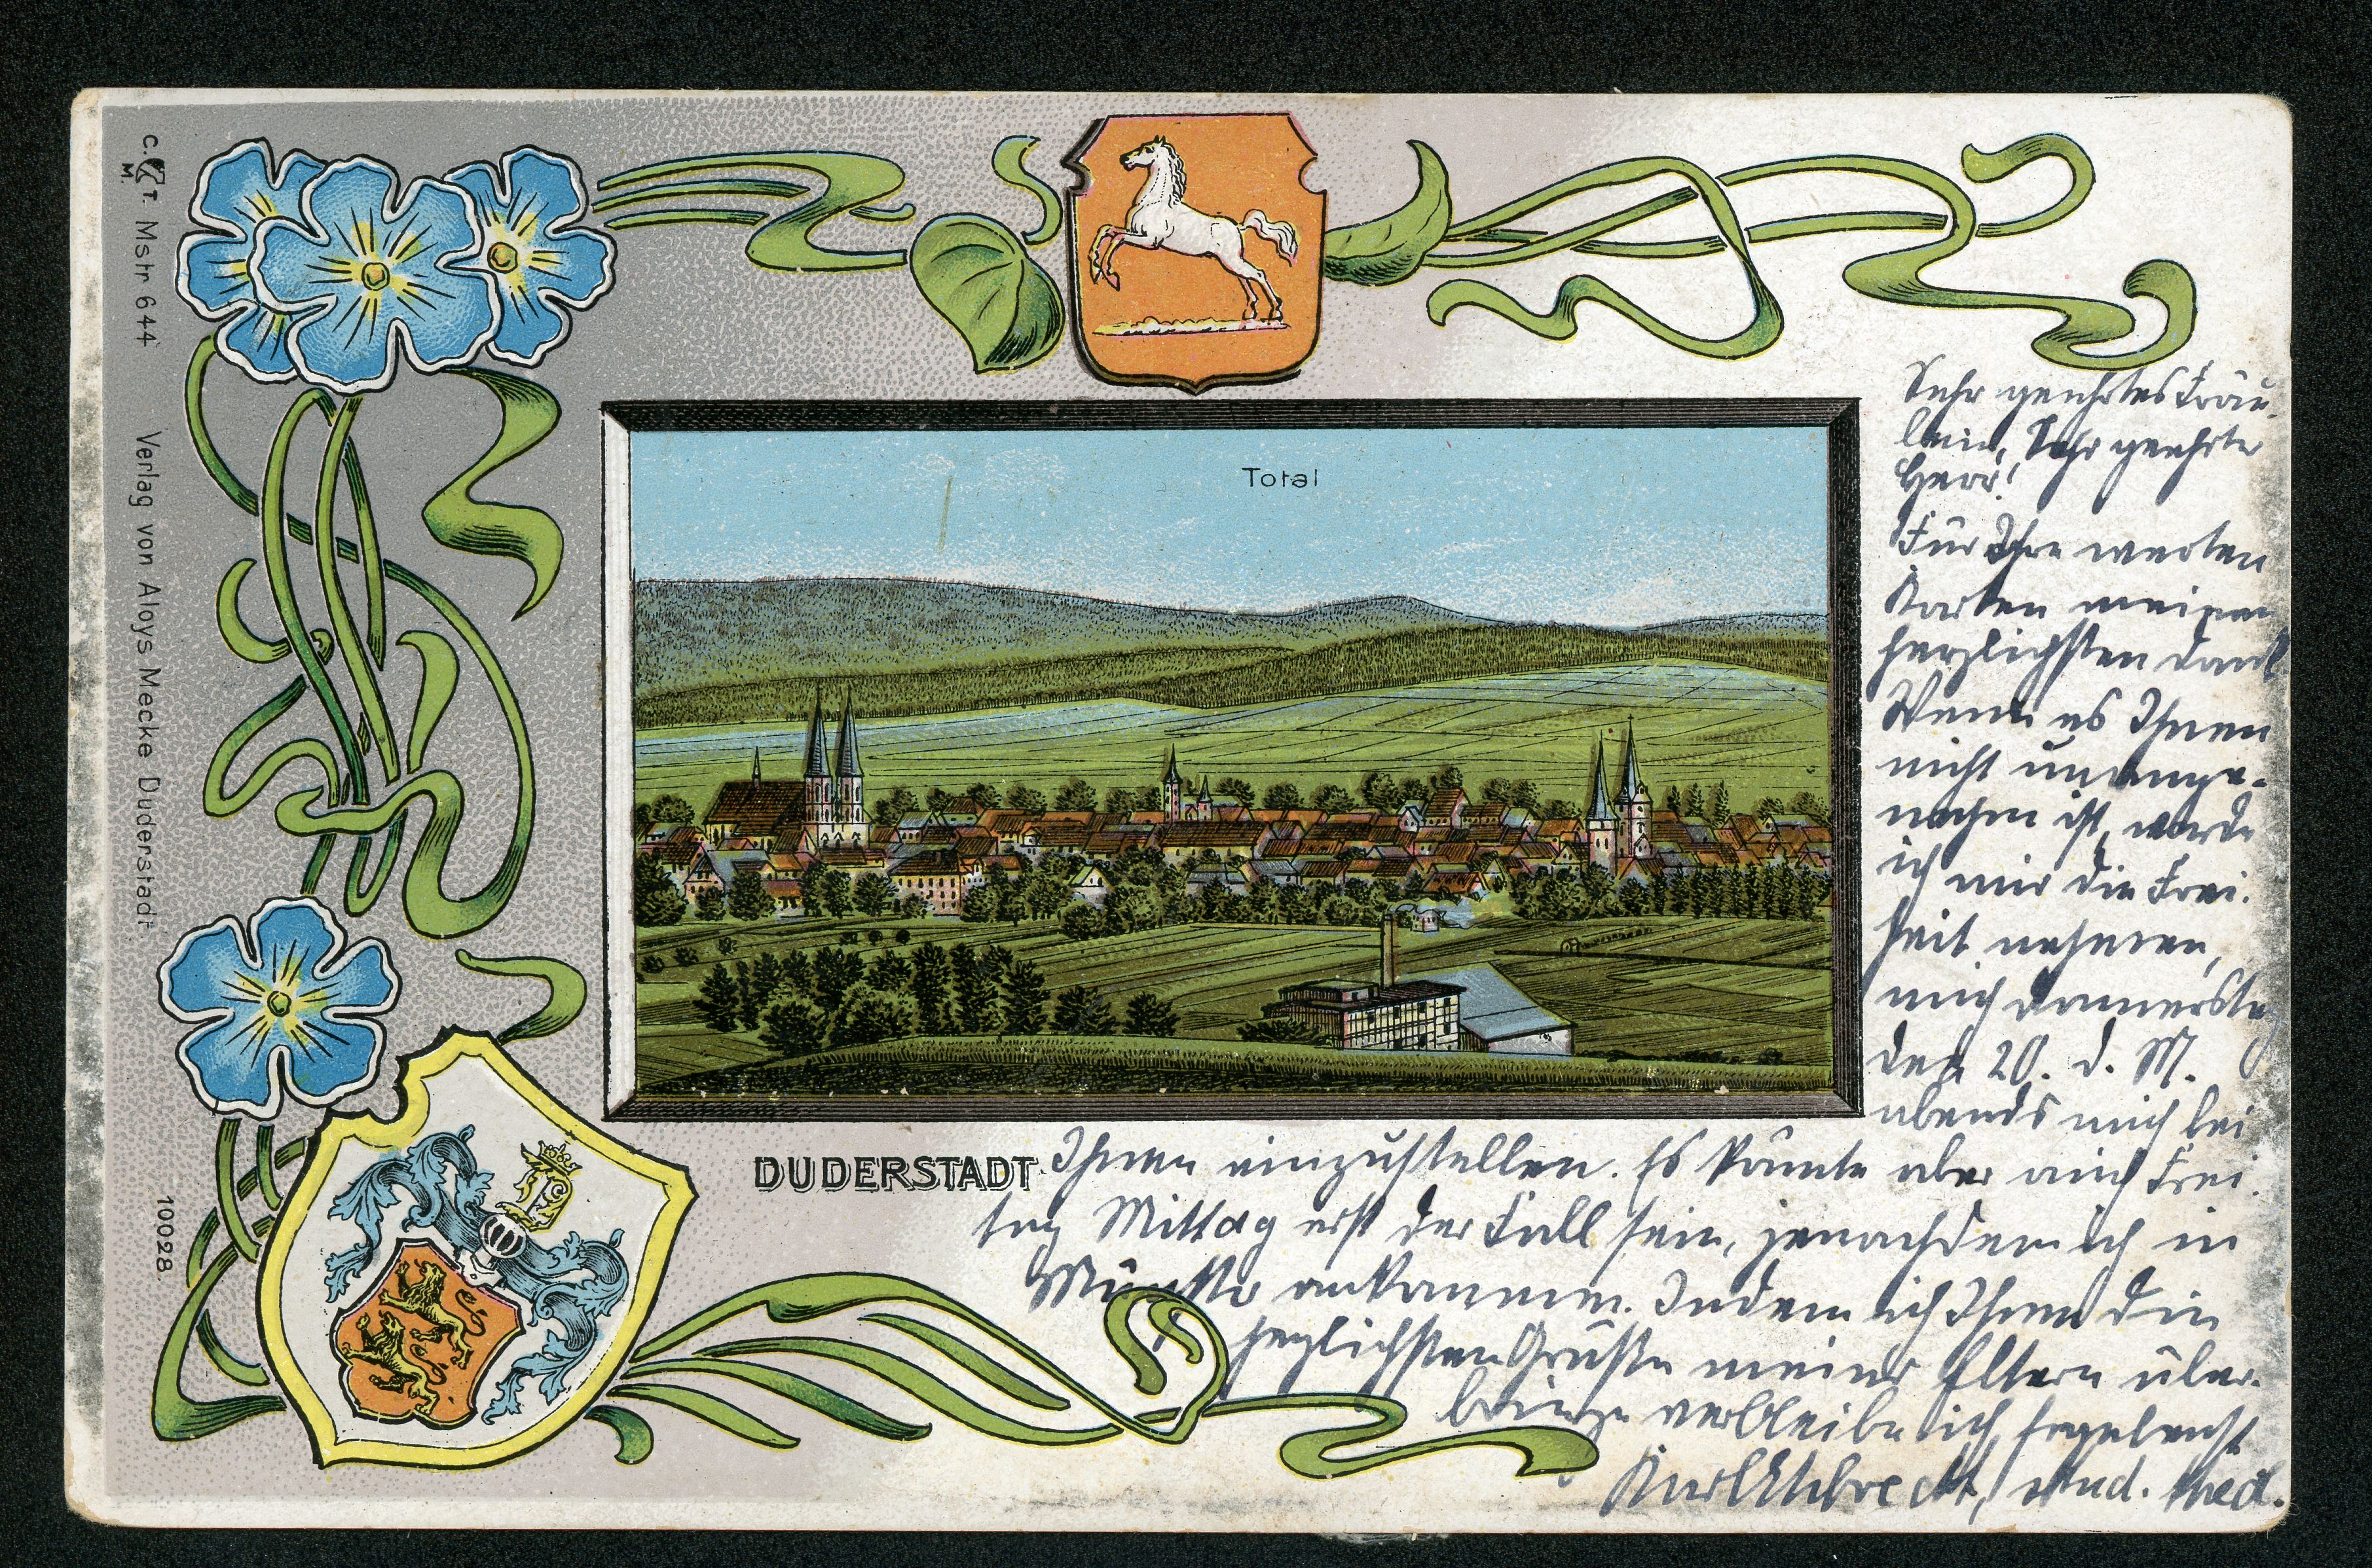 C. T.
M.
Mstr 644
Verlag von Aloys Mecke Duderstadt.
10028.
Total
DUDERSTADT.
Sehr geehrtes Fräu-
lein, Sehr geehrter
Herr!
Für Ihre werten
Karten meinen
herzlichsten Dank.
Wenn es Ihnen
nicht unange-
nehm ist, werde
ich mir die Frei-
heit nehmen,
mich Donnerstag
den 20. d. M.
abends mich bei
Ihnen einzustellen. Es könnte aber auch Frei-
tag Mittag erst der Fall sein, jenachdem ich in
Münster ankomme. Indem ich Ihnen die
herzlichsten Grüße meiner Eltern über-
bringe verbleibe ich, ergebenst
Karl stud. med.